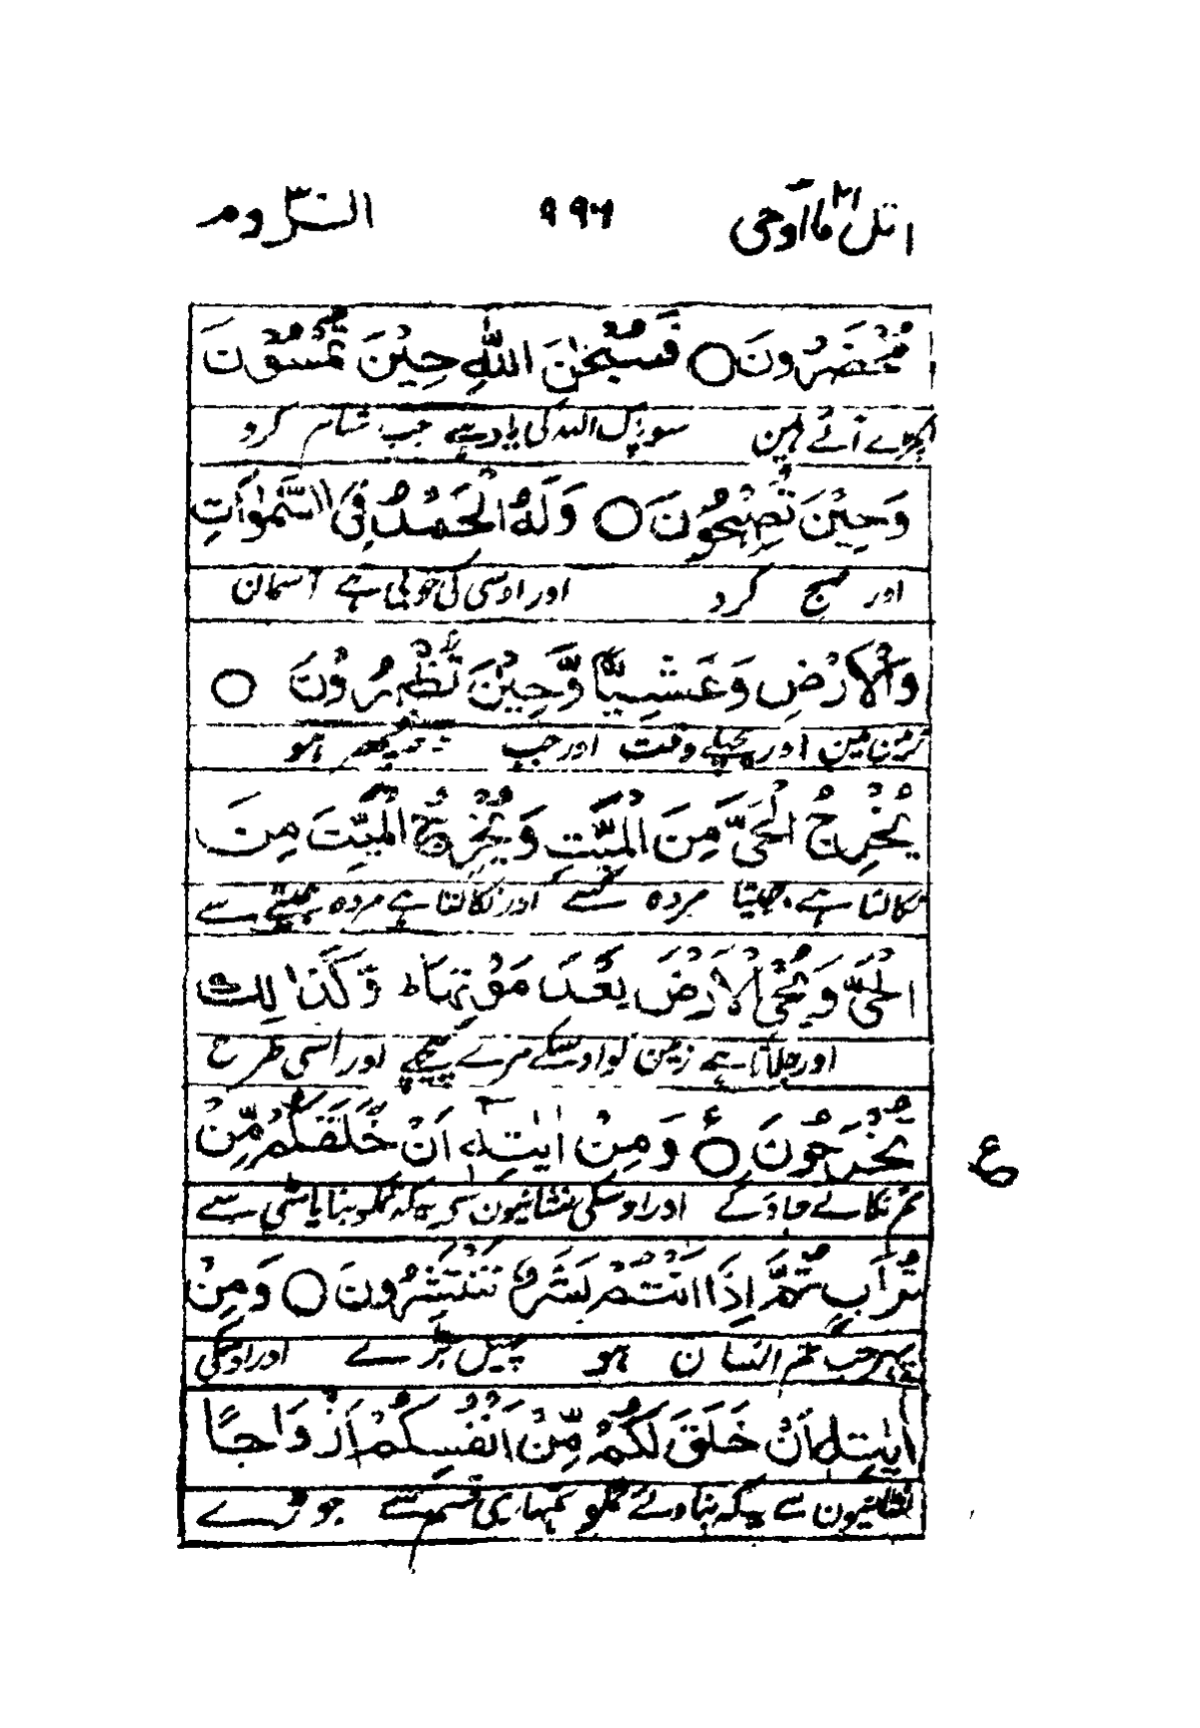 اتل ما اوحی ۲۱ ۹۹۶ الروم ۳۰
مُحْضَرُونَ ○ فَسُبْحٰنَ اللّٰهِ حِيْنَ تُمْسُوْنَ
پکڑے آئے ہین سو پاک اللہ کی یاد ہے جب شام کرو
وَحِيْنَ تُصْبِحُوْنَ ○ وَلَهُ الْحَمْدُ فِي السَّمٰوٰتِ
اور صبح کرو اور اوسی کی خوبی ہے آسمان
وَالْاَرْضِ وَعَشِيًّا وَّحِيْنَ تُظْهِرُوْنَ ○
زمین مین اور پچھلے وقت اور جب دوپہر ہو
يُخْرِجُ الْحَيَّ مِنَ الْمَيِّتِ وَيُخْرِجُ الْمَيِّتَ مِنَ
نکالتا ہے جیتا مردہ سے اور نکالتا ہے مردہ جیتے سے
الْحَيِّ وَيُحْيِ الْاَرْضَ بَعْدَ مَوْتِهَا ط وَكَذٰلِكَ
اور جلاتا ہے زمین کو اوسکے مرے پیچھے اور اسی طرح
تُخْرَجُوْنَ ○ع وَمِنْ اٰيٰتِهٖ اَنْ خَلَقَكُمْ مِّنْ
ع
تم نکالے جاؤگے اور اوسکی نشانیون سے یہ کہ تمکو بنایا مٹی سے
تُرَابٍ ثُمَّ اِذَا اَنْتُمْ بَشَرٌ تَنْتَشِرُوْنَ ○ وَمِنْ
پھر جب تم انسان ہو پھیل پڑے اور اوسکی
اٰيٰتِهٖ اَنْ خَلَقَ لَكُمْ مِّنْ اَنْفُسِكُمْ اَزْوَاجًا
نشانیون سے یہ کہ بنا دئے تمکو تمہاری قسم سے جوڑے